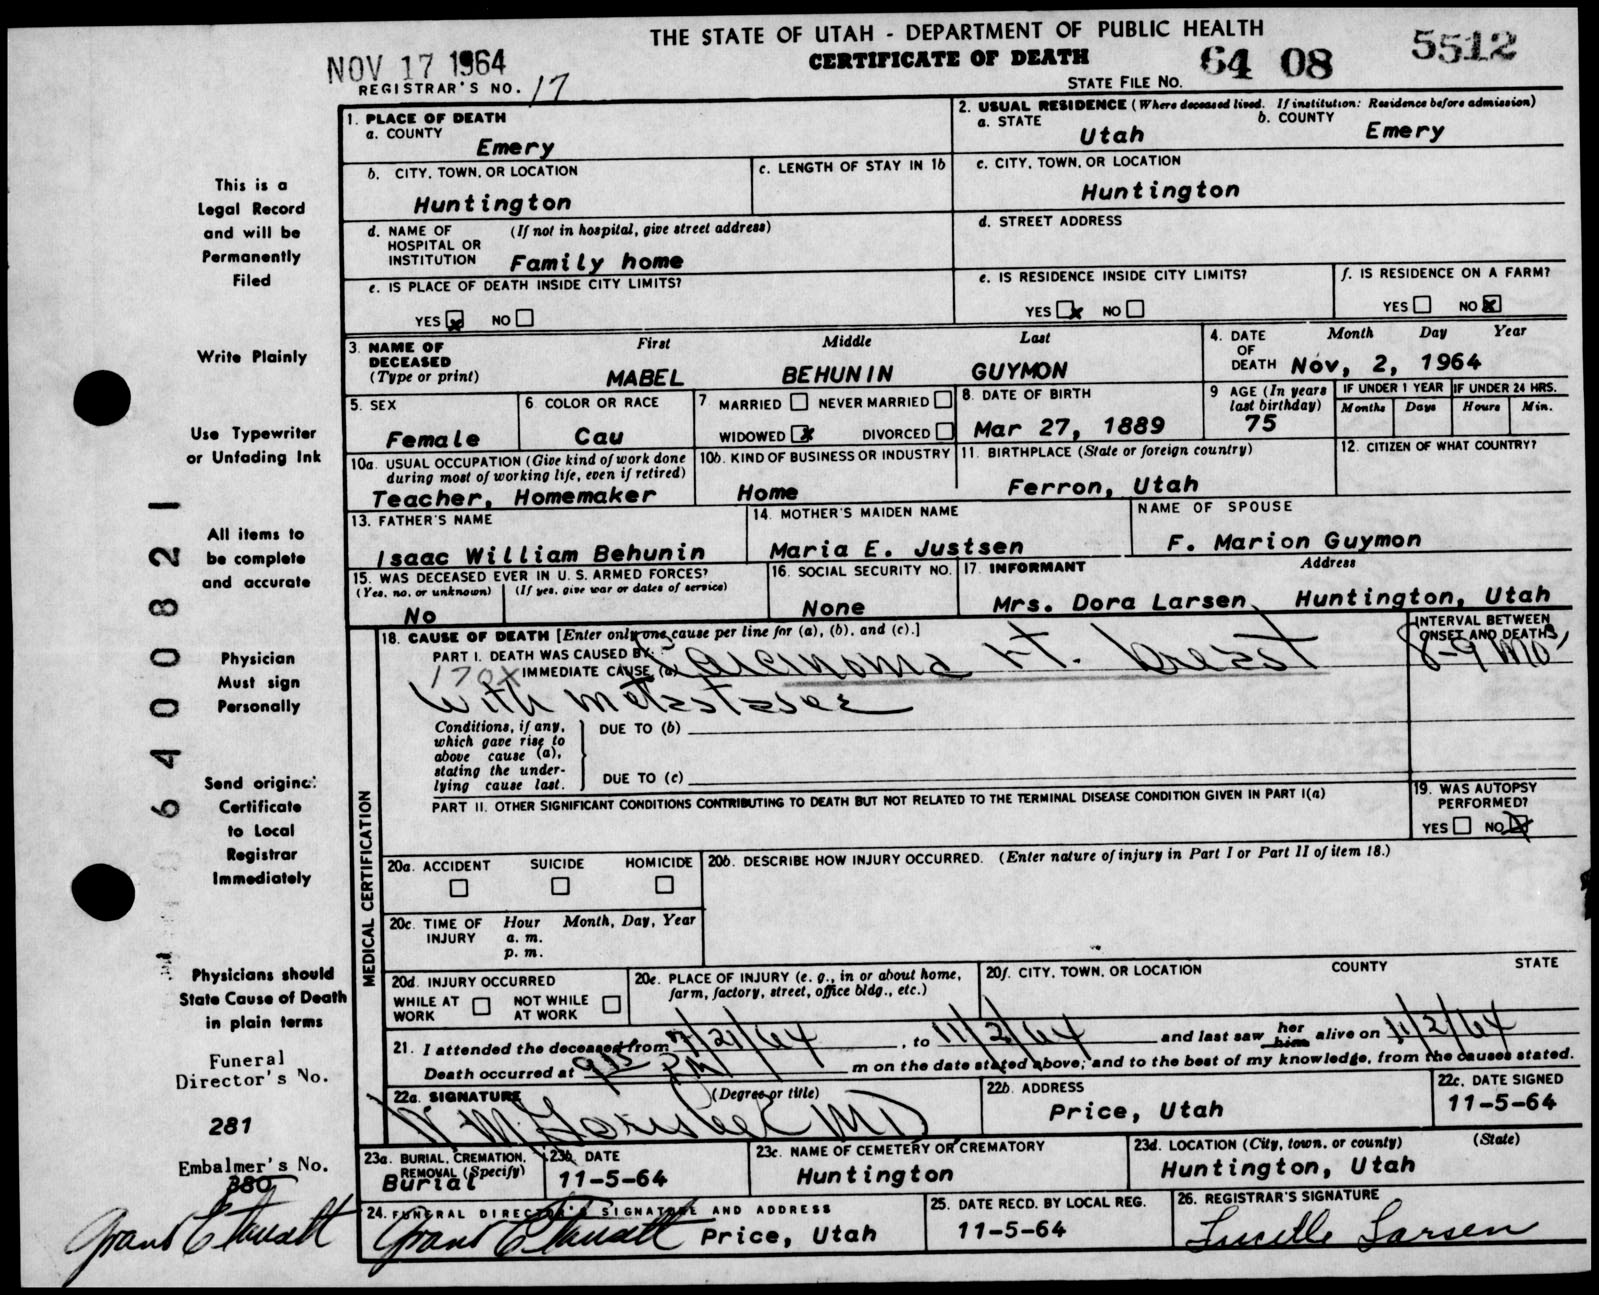 THE STATE OF UTAH - DEPARTMENT OF PUBLIC HEALTH
CERTIFICATE OF DEATH
NOV 17 1964
REGISTRAR'S NO. 17
STATE FILE NO. 64 08 5512
This is a
Legal Record
and will be
Permanently
Filed
Write Plainly
Use Typewriter
or Unfading Ink
All items to
be complete
and accurate
Physician
Must sign
Personally
Send original
Certificate
to Local
Registrar
Immediately
Physicians should
State Cause of Death
in plain terms
Funeral
Director's No.
281
Embalmer's No.
380
64000821
1. PLACE OF DEATH
a. COUNTY
Emery
2. USUAL RESIDENCE (Where deceased lived. If institution: Residence before admission)
a. STATE Utah b. COUNTY Emery
b. CITY, TOWN, OR LOCATION
Huntington
c. LENGTH OF STAY IN 1b
c. CITY, TOWN, OR LOCATION
Huntington
d. NAME OF (If not in hospital, give street address)
HOSPITAL OR
INSTITUTION Family home
d. STREET ADDRESS
e. IS PLACE OF DEATH INSIDE CITY LIMITS?
YES x NO
e. IS RESIDENCE INSIDE CITY LIMITS?
YES x NO
f. IS RESIDENCE ON A FARM?
YES NO x
3. NAME OF First Middle Last
DECEASED
(Type or print) MABEL BEHUNIN GUYMON
4. DATE Month Day Year
OF
DEATH Nov, 2, 1964
5. SEX
Female
6. COLOR OR RACE
Cau
7. MARRIED NEVER MARRIED
WIDOWED x DIVORCED
8. DATE OF BIRTH
Mar 27, 1889
9 AGE (In years
last birthday)
75
IF UNDER 1 YEAR IF UNDER 24 HRS.
Months Days Hours Min.
10a. USUAL OCCUPATION (Give kind of work done
during most of working life, even if retired)
Teacher, Homemaker
10b. KIND OF BUSINESS OR INDUSTRY
Home
11. BIRTHPLACE (State or foreign country)
Ferron, Utah
12. CITIZEN OF WHAT COUNTRY?
13. FATHER'S NAME
Isaac William Behunin
14. MOTHER'S MAIDEN NAME
Maria E. Justsen
NAME OF SPOUSE
F. Marion Guymon
15. WAS DECEASED EVER IN U. S. ARMED FORCES?
(Yes, no, or unknown) (If yes, give war or dates of service)
No
16. SOCIAL SECURITY NO.
None
17. INFORMANT Address
Mrs. Dora Larsen Huntington, Utah
MEDICAL CERTIFICATION
18. CAUSE OF DEATH [Enter only one cause per line for (a), (b), and (c).]
INTERVAL BETWEEN
ONSET AND DEATH
PART I. DEATH WAS CAUSED BY:
170X IMMEDIATE CAUSE (a) Carcinoma rt. breast 8-9 mo's
with metastases
Conditions, if any,
which gave rise to
above cause (a),
stating the under-
lying cause last.
DUE TO (b)
DUE TO (c)
PART II. OTHER SIGNIFICANT CONDITIONS CONTRIBUTING TO DEATH BUT NOT RELATED TO THE TERMINAL DISEASE CONDITION GIVEN IN PART I(a)
19. WAS AUTOPSY
PERFORMED?
YES NO x
20a. ACCIDENT SUICIDE HOMICIDE
20b. DESCRIBE HOW INJURY OCCURRED. (Enter nature of injury in Part I or Part II of item 18.)
20c. TIME OF Hour Month, Day, Year
INJURY a. m.
p. m.
20d. INJURY OCCURRED
WHILE AT WORK NOT WHILE AT WORK
20e. PLACE OF INJURY (e. g., in or about home,
farm, factory, street, office bldg., etc.)
20f. CITY, TOWN, OR LOCATION COUNTY STATE
21. I attended the deceased from 7/21/64, to 11/2/64 and last saw her him alive on 11/2/64
Death occurred at 9:15 PM m on the date stated above; and to the best of my knowledge, from the causes stated.
22a. SIGNATURE (Degree or title)
MD
22b. ADDRESS
Price, Utah
22c. DATE SIGNED
11-5-64
23a. BURIAL, CREMATION,
REMOVAL (Specify)
Burial
23b. DATE
11-5-64
23c. NAME OF CEMETERY OR CREMATORY
Huntington
23d. LOCATION (City, town, or county) (State)
Huntington, Utah
24. FUNERAL DIRECTOR'S SIGNATURE AND ADDRESS
Price, Utah
25. DATE RECD. BY LOCAL REG.
11-5-64
26. REGISTRAR'S SIGNATURE
Lucille Larsen